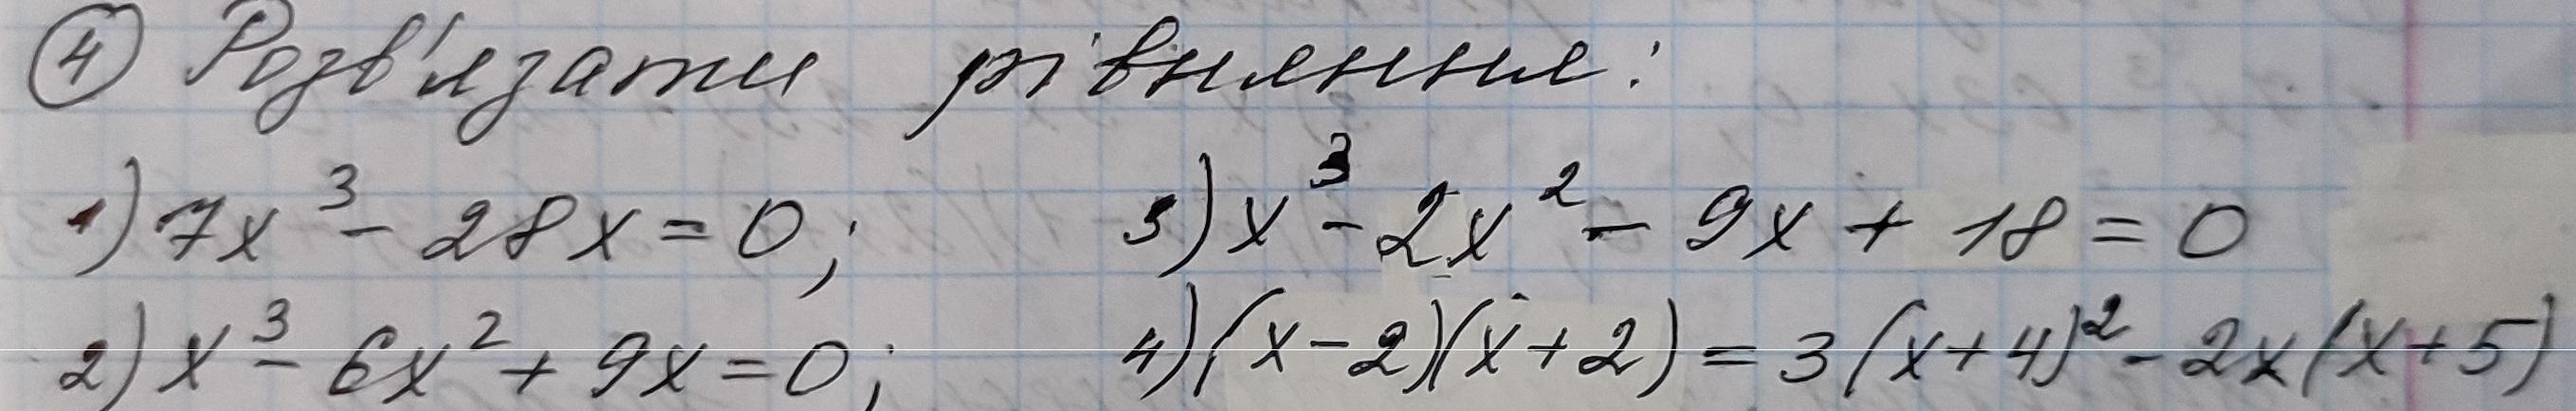 ④ Розв'язати рівняння:
1) 7x³ - 28x = 0; 3) x³ - 2x² - 9x + 18 = 0
2) x³ - 6x² + 9x = 0; 4) (x-2)(x+2) = 3(x+4)² - 2x(x+5)